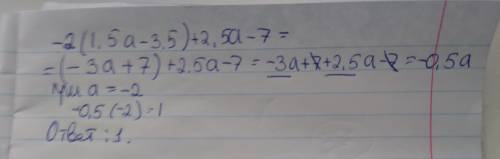 -2(1,5a-3,5)+2,5a-7=
=(-3a+7)+2,5a-7=-3a+7+2,5a-7=-0,5a
при a=-2
-0,5(-2)=1
Ответ: 1.